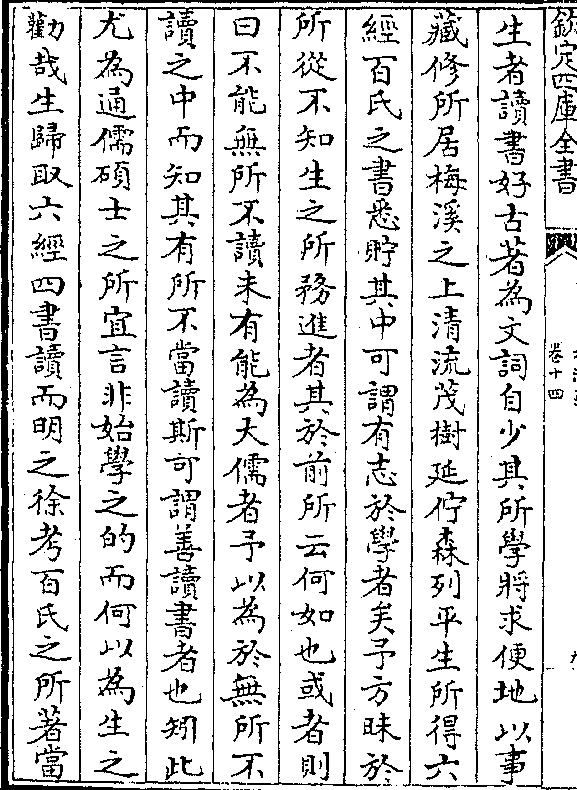 欽定四庫全書
卷十四
生者讀書好古著為文詞自少其所學將求便地以事
藏修所居梅溪之上清流茂樹延佇森列平生所得六
經百氏之書悉貯其中可謂有志於學者矣予方昧於
所從不知生之所務進者其於前所云何如也或者則
曰不能無所不讀未有能為大儒者予以為於無所不
讀之中而知其有所不當讀斯可謂善讀書者也矧此
尤為通儒碩士之所宜言非始學之的而何以為生之
勸哉生歸取六經四書讀而明之徐考百氏之所著當